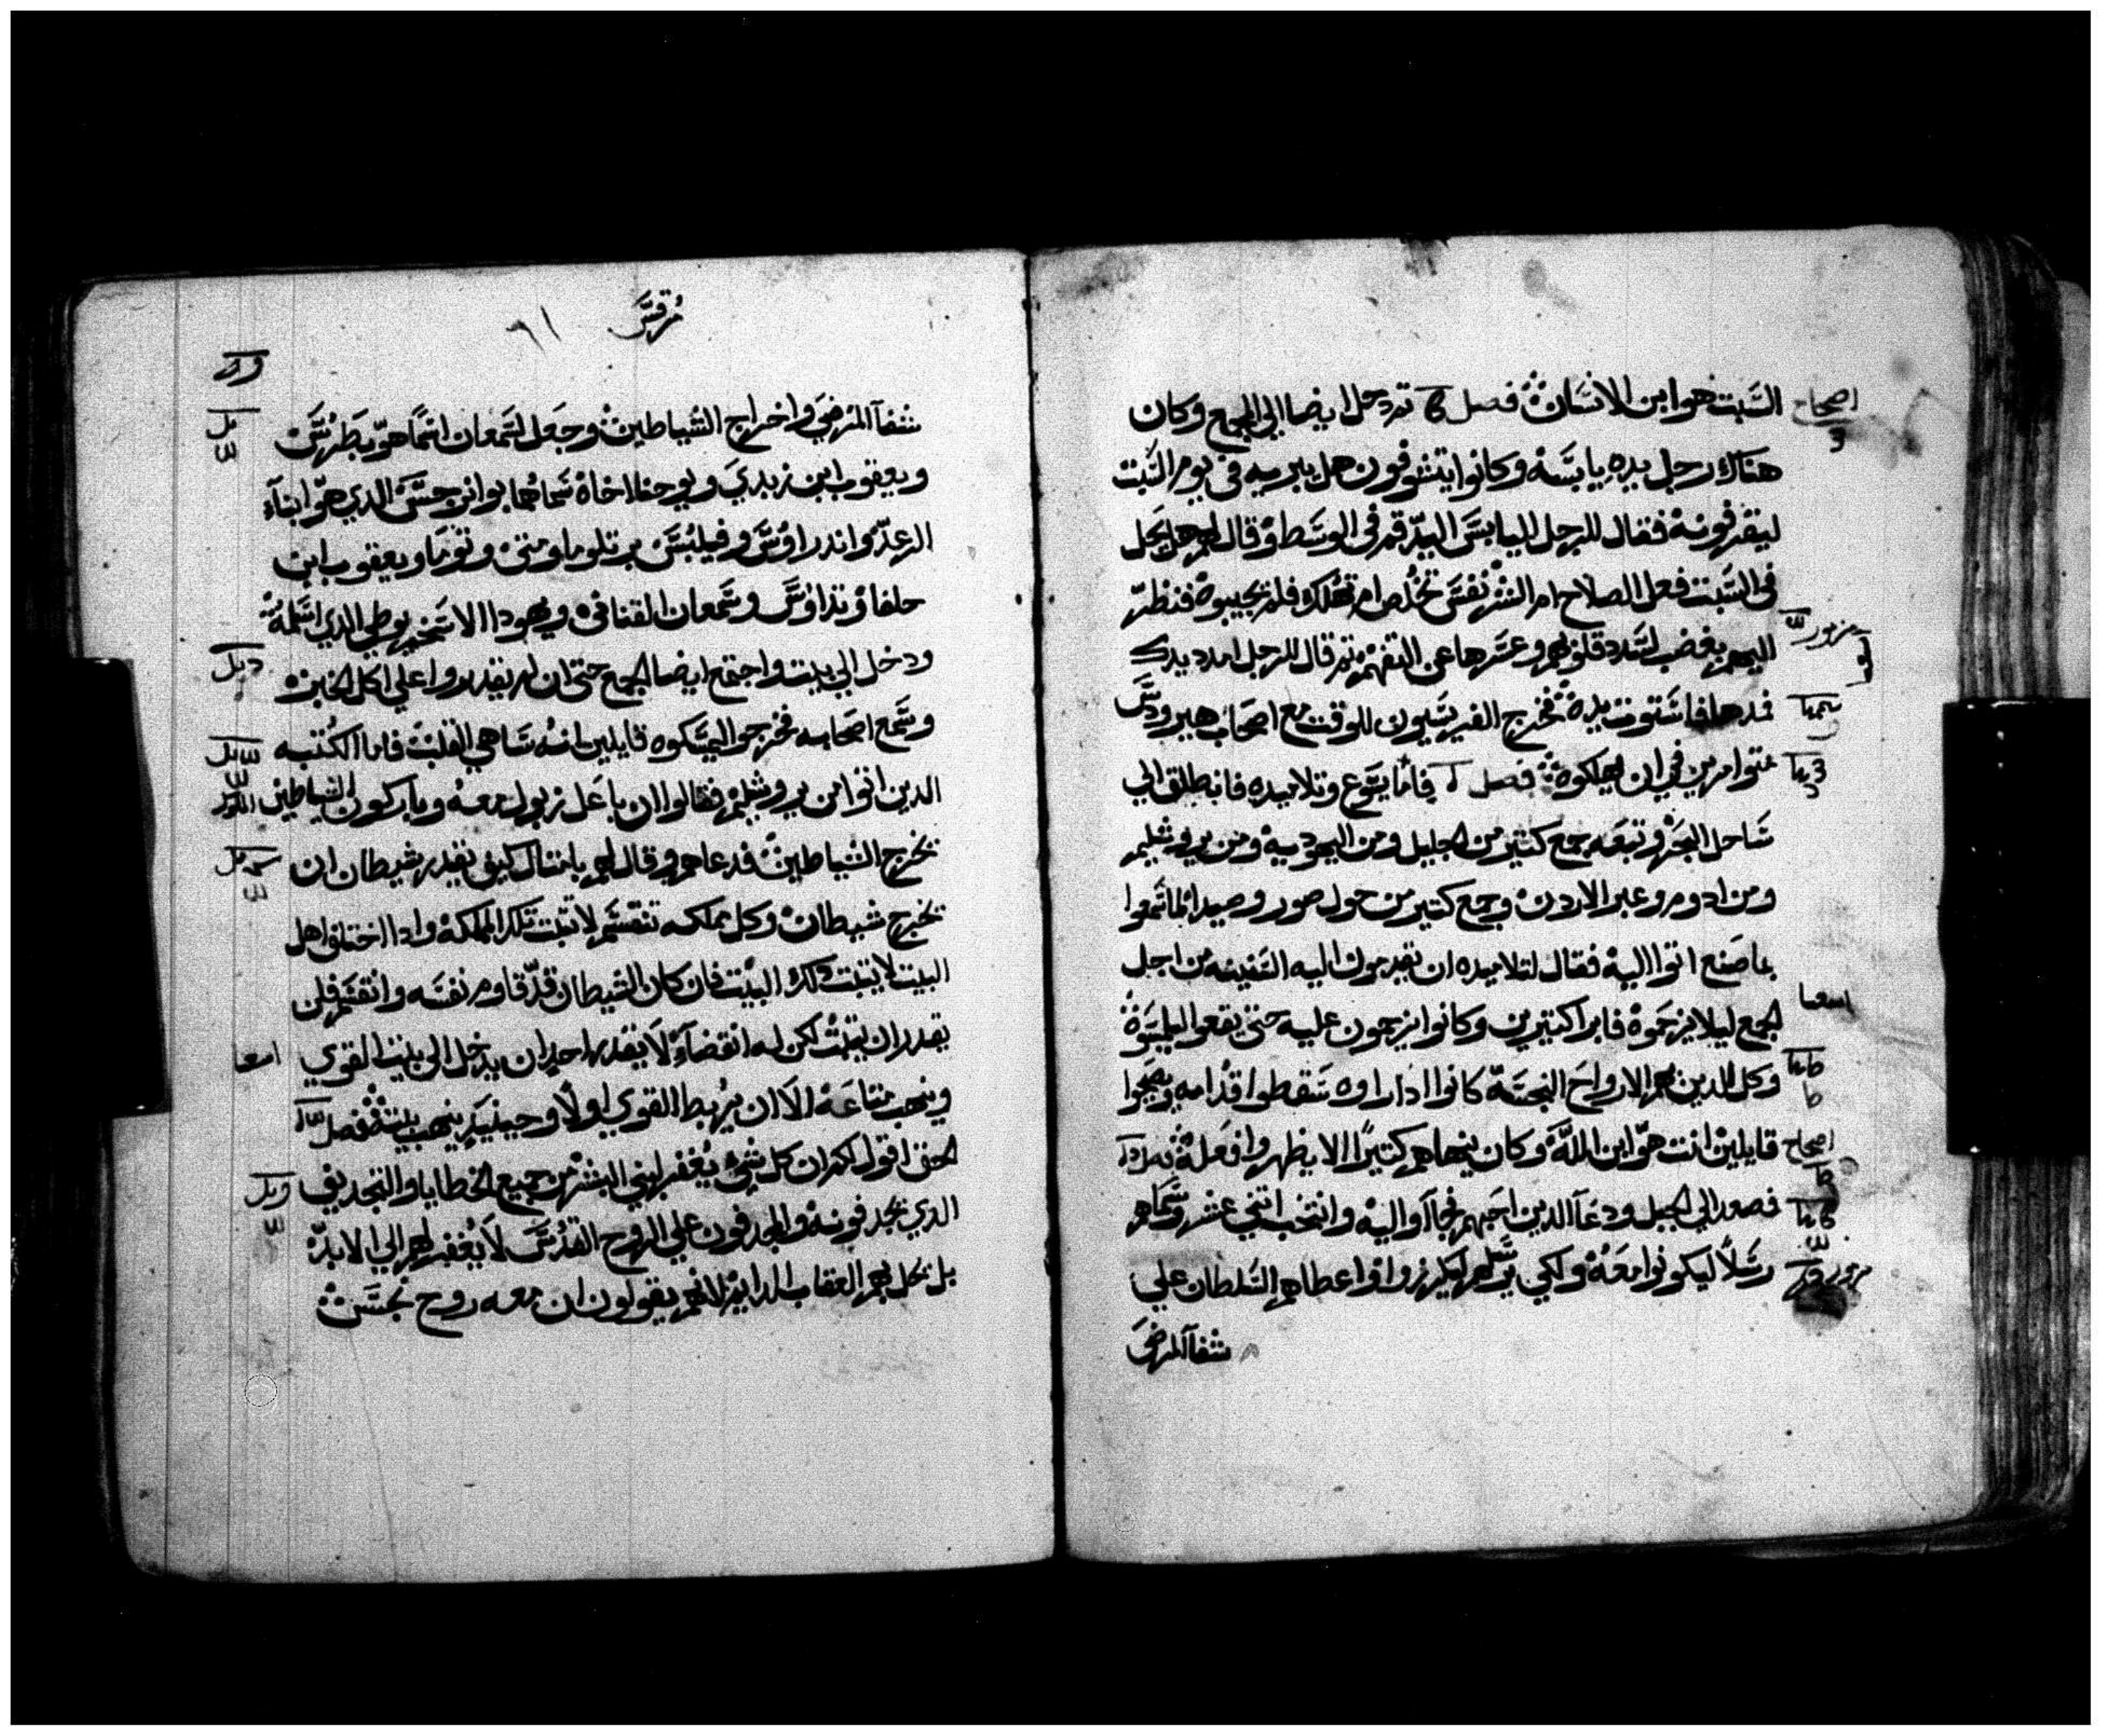 السَّبت هو ابن الانسَان فصل ثم دخل ايضا الي المجمع وكان
هناك رجل يده يابسَه وكانوا يتشوفون هل يبريه في يوم السَّبت
ليقرفونه فقال للرجل اليابسَ اليد قم في الوسَط وقال لهم هل يحل
في السَّبت فعل الصلاح ام الشر نفسَ تخلص ام تهلك فلم يجيبوه فنظر
اليهم بغضب لشدد قلوبهم وعسَرها عن التفهم ثم قال للرجل امدد يدك
فمدها فاسَتوت يده فخرج الفريسَيون للوقت مع اصحاب هيرودسَ
متوامرين في ان يهلكوه فصل فاما يسَوع وتلاميده فانطلق الي
سَاحل البحر وتبعه جمع كتير من الجليل ومن اليهوديه ومن يروشليم
ومن ادوم وعبر الاردن وجمع كتير من حول صور وصيدا لما سَمعوا
بما صنع اتوا اليه فقال لتلاميده ان يقدمون اليه السَّفينه من اجل
الجمع ليلا يزحموه فابرا كتيرين وكانوا يزحمون عليه حتي يقعوا ليلمسَوه
وكل الدين بهم الارواح النجسَه كانوا ادا راوه سَقطوا قدامه وصيحوا
قايلين انت هو ابن الله وكان ينهاهم كتيرًا الا يظهروا فعله
فصعد الي الجبل ودعا الدين احبهم فجآوا اليه وانتخب اتني عشر وسَماهم
رسَلاً ليكونوا معه ولكي يرسَلهم ليكرزوا واعطاهم السَّلطان علي
شفآ المرضي
اصحاح
اصحاح
مرقسَ
شفآ المرضي واخراج الشياطين وجعل لسَمعان اسَمًا هو بطرسَ
ويعقوب ابن زبدي ويوحنا اخاه سَماهما بوانرجسَ الدي هو ابنآء
الرعد واندراوسَ وفيلبسَ برتلوماو متي وتوما ويعقوب ابن
حلفا وتداوسَ وسَمعان القناني ويهودا الاسَخريوطي الدي اسَلمه
ودخل الي بيت واجتمع ايضا الجمع حتي ان لم يقدروا علي اكل الخبز
وسَمع اصحابه فخرجوا ليمسَكوه قايلين انه سَاهي القلب فاما الكتبه
الدين اتوا من يروشليم فقالوا ان باعل زبول معه وباركون الشياطين
يخرج الشياطين فدعاهم وقال لهم بامتال كيف يقدر شيطان ان
يخرج شيطان وكل مملكه تنقسَم لا تتبت تلك المملكه وادا اختلف اهل
البيت لا يتبت دلك البيت فان كان الشيطان قد قاوم نفسَه وانقسَم فلن
يقدر ان يتبت لكن له انقضآء لا يقدر احد ان يدخل الي بيت القوي
وينهب متاعه الا ان يربط القوي اولاً وحينيدٍ ينهب بيته فصل
الحق اقول لكم ان كل شي يغفر لبني البشر من جميع الخطايا والتجديف
الدي يجدفونه والمجدفون علي الروح القدسَ لا يغفر لهم الي الابد
بل تحل بهم العقاب الدايم لانهم يقولون ان معه روح نجسَ